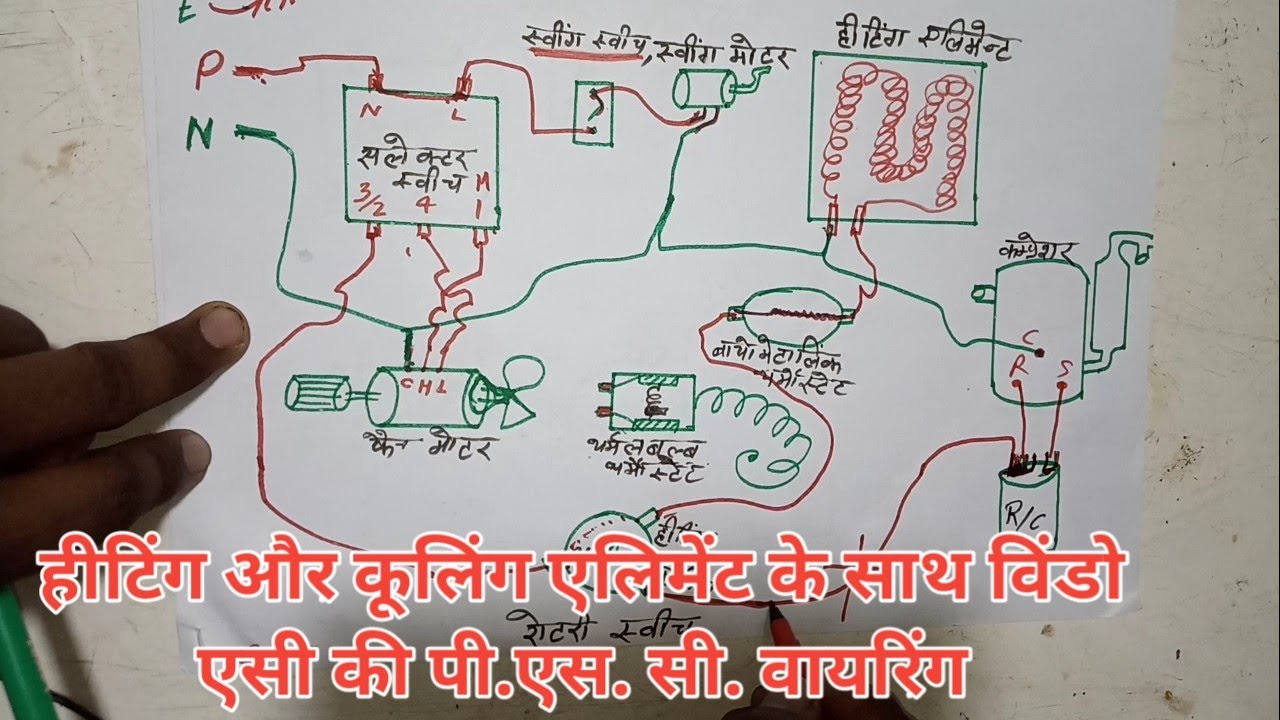 E
P
N
स्वींग स्वीच, स्वींग मोटर
हीटिंग एलिमेन्ट
N L
सलेक्टर
स्वीच M
3/2 4 1
कम्प्रेशर
C
R S
बायोमेटालिंक
थर्मोस्टेट
C H L
फैन मोटर
थर्मलबल्ब
थर्मोस्टेट
R/C
रोटरी स्वीच
हीटिंग और कूलिंग एलिमेंट के साथ विंडो
एसी की पी.एस. सी. वायरिंग